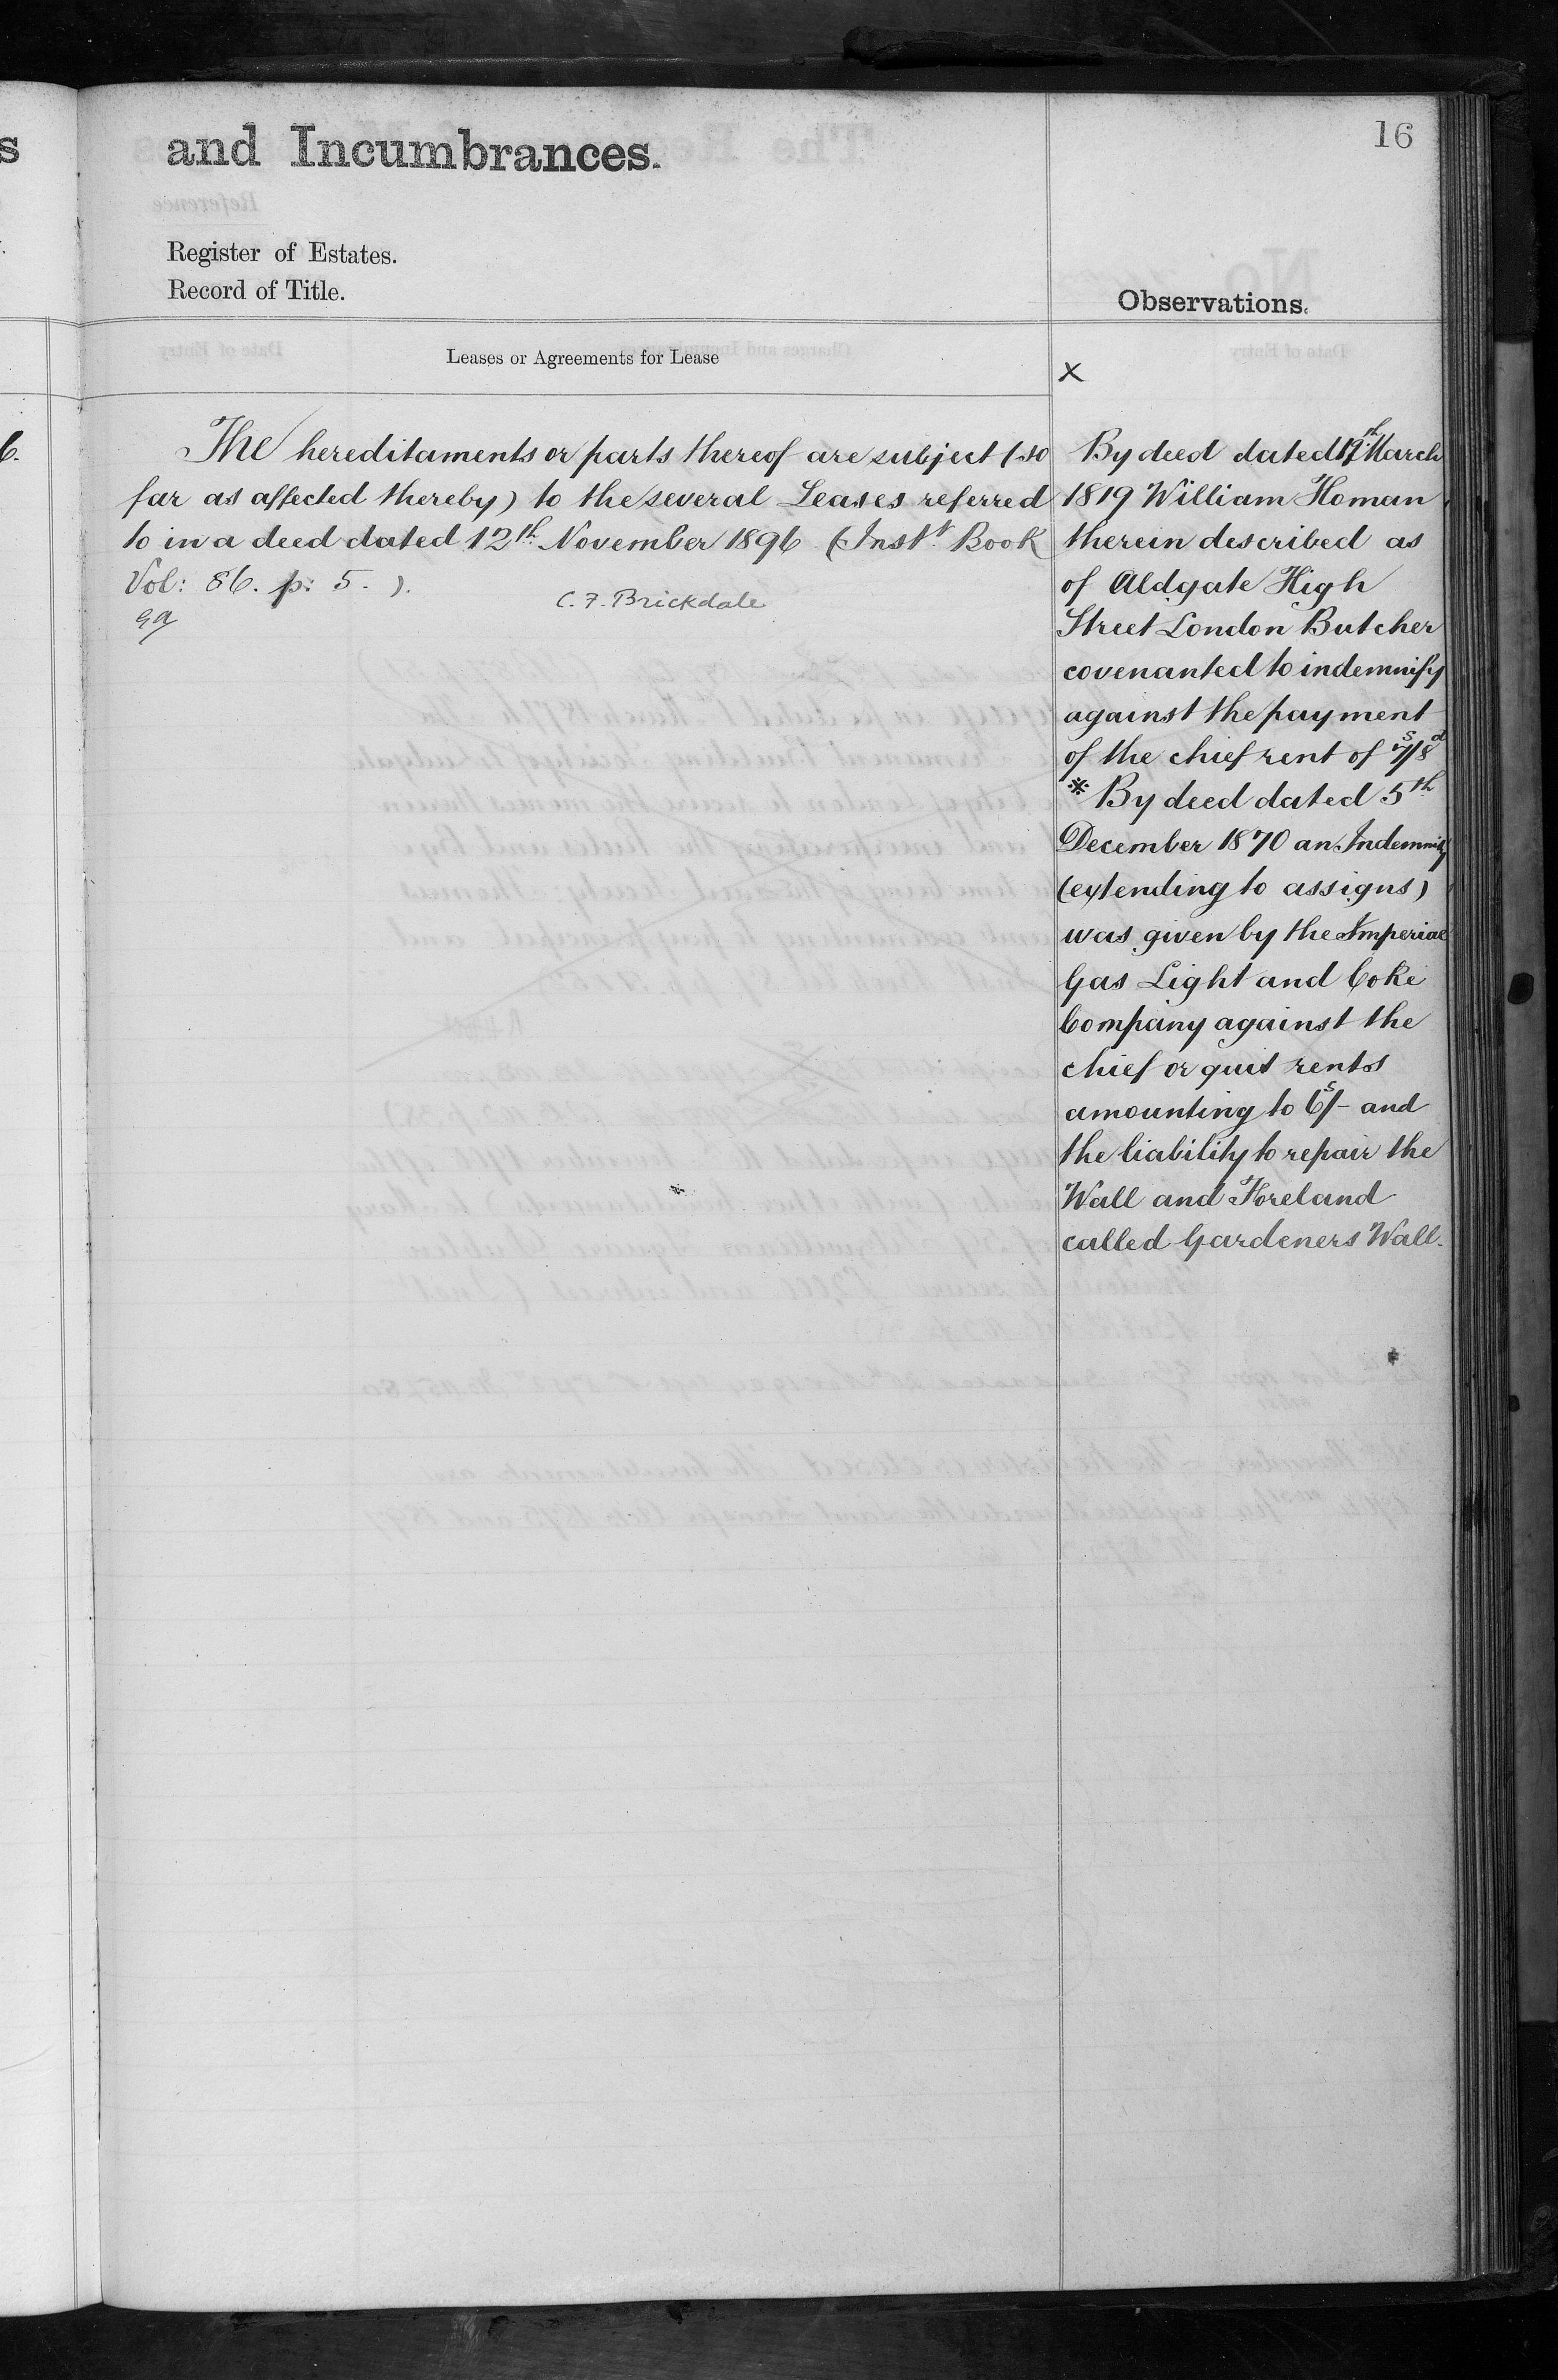 16
and Incumbrances.
Register of Estates.
Record of Title.
Leases or Agreements for Lease
The hereditaments or parts thereof are subject (so
far as affected thereby) to the several Leases referred
to in a deed dated 12th November 1896 (Instt Book
Vol: 86. p: 5. ).
C. F. Brickdale
Observations.
x
By deed dated March
1819 William Homan
therein described as
of Aldgate High
Street London Butcher
covenanted to indemnify
against the payment
of the chief rent of 7s/8d
※ By deed dated 5th
December 1870 an Indemnity
(extending to assigns)
was given by the Imperial
Gas Light and Coke
Company against the
chief or quit rents
amounting to 6s/- and
the liability to repair the
Wall and Foreland
called Gardeners Wall.